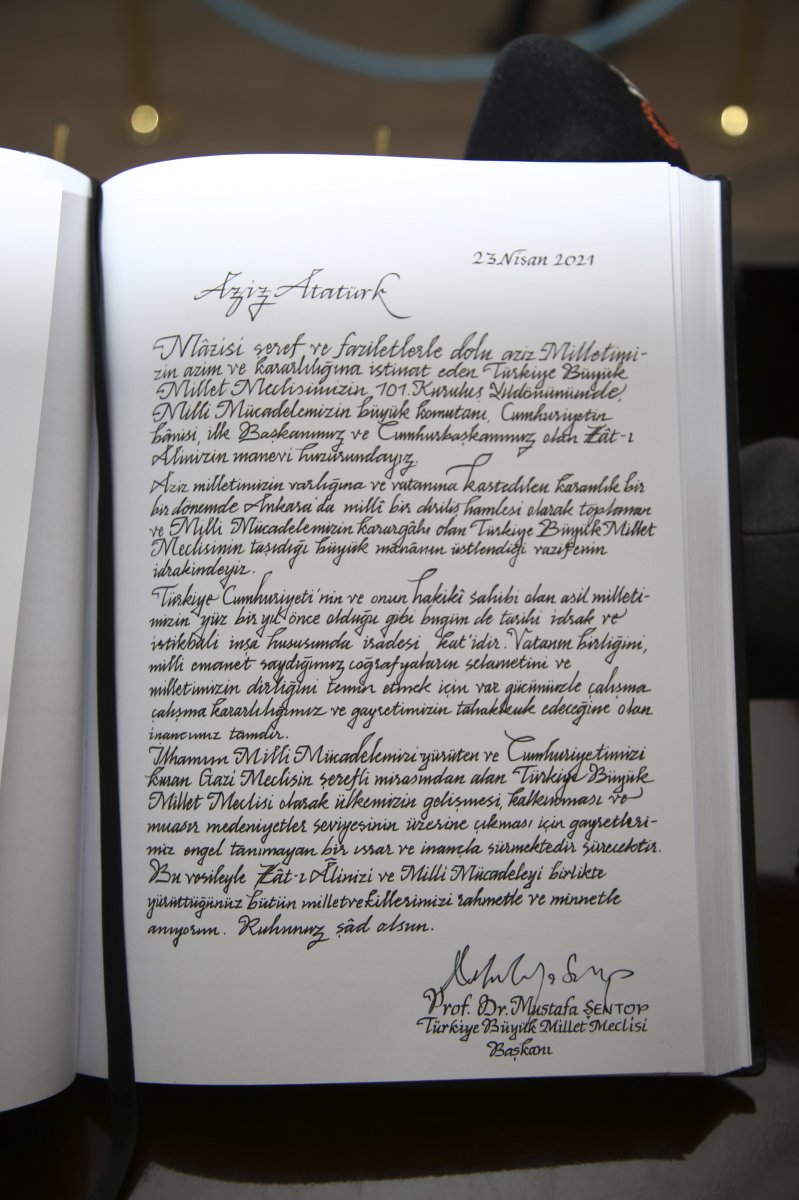 23 Nisan 2021
Aziz Atatürk
Mâzisi şeref ve faziletlerle dolu aziz Milletimi-
zin azim ve kararlılığına istinat eden Türkiye Büyük
Millet Meclisimizin 101. Kuruluş Yıldönümünde,
Milli Mücadelemizin büyük komutanı, Cumhuriyetin
bânisi, ilk Başkanımız ve Cumhurbaşkanımız olan Zât-ı
Âlinizin manevi huzurundayız.
Aziz milletimizin varlığına ve vatanına kastedilen karanlık bir
bir dönemde Ankara'da millî bir diriliş hamlesi olarak toplanan
ve Milli Mücadelemizin karargâhı olan Türkiye Büyük Millet
Meclisinin taşıdığı büyük mânânın üstlendiği vazifenin
idrakindeyiz.
Türkiye Cumhuriyeti'nin ve onun hakikî sahibi olan asil milleti-
mizin yüz bir yıl önce olduğu gibi bugün de tarihi idrak ve
istikbali inşa hususunda iradesi kat'idir. Vatanın birliğini,
milli emanet saydığımız coğrafyaların selametini ve
milletimizin dirliğini temin etmek için var gücümüzle çalışma
çalışma kararlılığımız ve gayretimizin tahakkuk edeceğine olan
inancımız tamdır.
İlhamını Milli Mücadelemizi yürüten ve Cumhuriyetimizi
kuran Gazi Meclisin şerefli mirasından alan Türkiye Büyük
Millet Meclisi olarak ülkemizin gelişmesi, kalkınması ve
muasır medeniyetler seviyesinin üzerine çıkması için gayretleri-
miz engel tanımayan bir ısrar ve inançla sürmektedir sürecektir.
Bu vesileyle Zât-ı Âlinizi ve Milli Mücadeleyi birlikte
yürüttüğünüz bütün milletvekillerimizi rahmetle ve minnetle
anıyorum. Ruhunuz şâd olsun.
Prof. Dr. Mustafa ŞENTOP
Türkiye Büyük Millet Meclisi
Başkanı